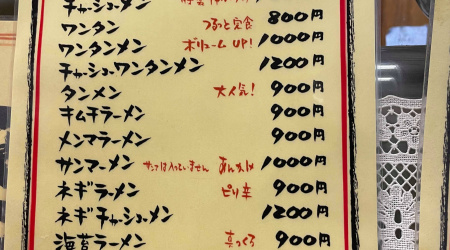 チャーシューメン
ワンタン つるっと定食 800円
ワンタンメン ボリュームUP! 1000円
チャーシューワンタンメン 1200円
タンメン 大人気! 900円
キムチラーメン 900円
メンマラーメン 900円
サンマーメン サンマは入っていません あんかけ 1000円
ネギラーメン ピリ辛 900円
ネギチャーシューメン 1200円
海苔ラーメン 真っくろ 900円